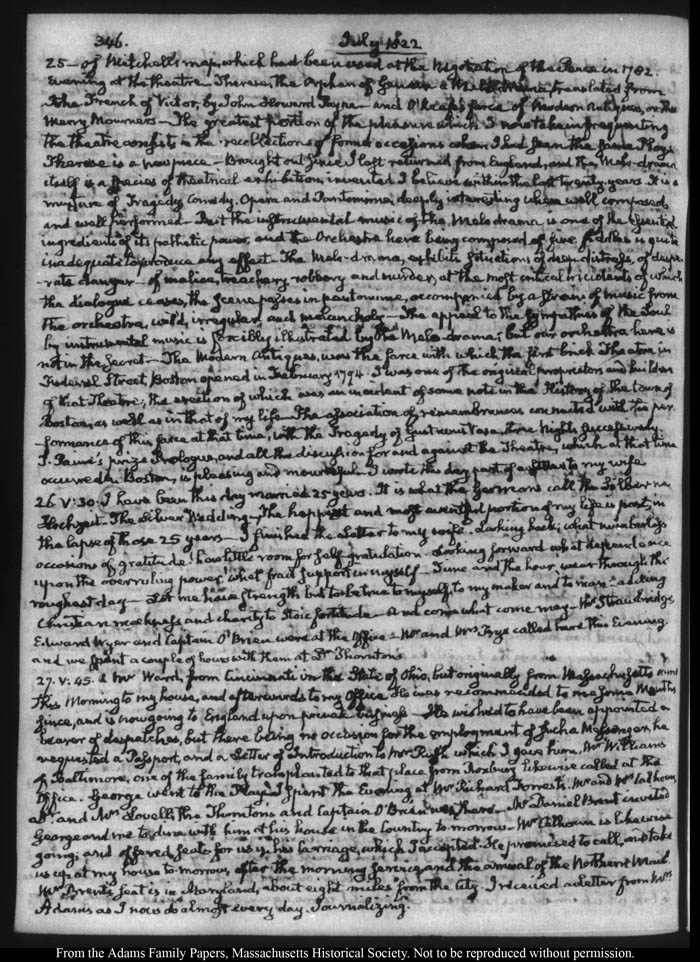 346. July 1822
25— of Mitchell's map, which had been used at the Negotiation of the Peace in 1782.
Evening at the theatre— Therese, the Orphan of Geneva a Melo-drama, translated from
the French of Victor, by John Howard Payne— and O'Keefe's farce of Modern Antiques, or the
Merry Mourners— The greatest portion of the pleasure which I now take in frequenting
the theatre consists in the recollections of former occasions when I had seen the same Plays
Therese is a new piece— Brought out since I last returned from England, and the Melo-drama
itself is a species of theatrical exhibition, invented I believe within the last twenty years. It is a
mixture of Tragedy, Comedy, Opera and Pantomime, deeply interesting when well composed,
and well performed— But the instrumental music of the Melodrama is one of the essential
ingredients of its pathetic power, and the Orchestra here being composed of five fiddles is quite
inadequate to produce any effect— The Melo-drama, exhibits situations of deep distress, of despe-
-rate danger— of malice, treachery, robbery and murder, at the most critical incidents of which
the dialogue ceases, the scene passes in pantomime, accompanied by a strain of music from
the orchestra, wild, irregular, and melancholy— The appeal to the sympathies of the Soul
by instrumental music is forcibly illustrated by the Melo-drama; but our orchestra here is
not in the secret— The Modern Antiques, was the farce with which the first brick Theatre in
Federal Street, Boston opened in February 1794. I was one of the original proprietors and builders
of that Theatre; the erection of which was an incident of some note in the History of the town of
Boston, as well as in that of my life— The association of remembrances connected with the per-
-formance of this farce at that time, with the Tragedy of Gustavus Vasa, three Nights successively.
T. Paine's prize Prologue, and all the discussion for and against the Theatre, which at that time
occurred in Boston, is pleasing and mournful— I wrote this day part of a letter to my wife
26. V:30. I have been this day married 25 years. It is what the Germans call the Silberne
Hochzeit— The Silver Wedding— The happiest and most eventful portion of my life is past, in
the lapse of those 25 years— I finished the Letter to my wife. Looking back, what numberless
occasions of gratitude! how little room for self-gratulation— Looking forward what dependance
upon the overruling power! what frail support in myself— Time and the hour, wear through the
roughest day— Let me have strength but to be true to myself, to my maker and to man— adding
Christian meekness and charity to Stoic fortitude— And come what come may— Mr Standridge
Edward Wyer and Captain O'Brien were at the Office— Mr and Mrs Frye called here this Evening,
and we spent a couple of hours with them at Dr Thornton's
27. V:45. A Mr Ward, from Cincinnati in the State of Ohio, but originally from Massachusetts came
this Morning to my house, and afterwards to my Office. He was recommended to me some Months
since, and is now going to England upon private business— He wished to have been appointed a
bearer of despatches, but there being no occasion for the employment of such a Messenger, he
requested a Passport, and a Letter of Introduction to Mr Rush which I gave him. Mr Williams
of Baltimore, one of the family transplanted to that place from Roxbury likewise called at the
Office. George went to the Play. I spent the Evening at Mr Richard Forrest's. Mr and Mrs Calhoun,
and Mrs Lovell, the Thornton's and Captain O'Brien were there— Mr Daniel Brent invited
George and me to dine with him at his house in the Country to-morrow— Mr Calhoun is likewise
going; and offered seats for us in his carriage, which I accepted. He promised to call, and take
us up at my house to-morrow, after the morning service, and the arrival of the Northern Mail.
Mr Brent's seat is in Maryland, about eight miles from the City. I received a Letter from Mrs
Adams as I now do almost every day. Journalizing.
From the Adams Family Papers, Massachusetts Historical Society. Not to be reproduced without permission.